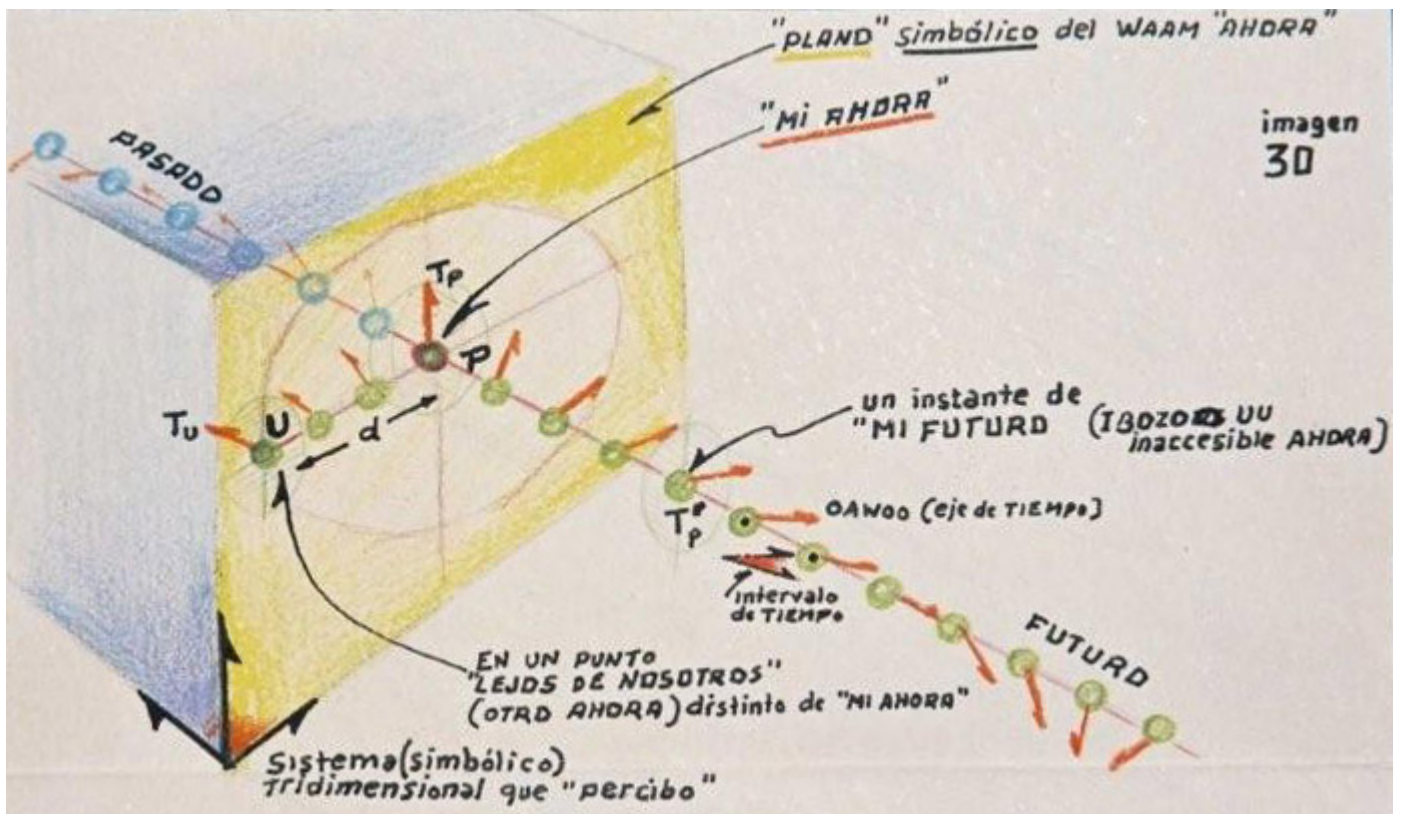 "PLANO" simbólico del WAAM "AHORA"
"Mi AHORA"
imagen
30
PASADO
TP
P
TU
U
d
un instante de
"MI FUTURO (IBOZOO UU
inaccesible AHORA)
OAWOO (eje de TIEMPO)
T'P
intervalo
de TIEMPO
FUTURO
EN UN PUNTO
"LEJOS DE NOSOTROS"
(OTRO AHORA) distinto de "MI AHORA"
Sistema (simbólico)
Tridimensional que "percibo"